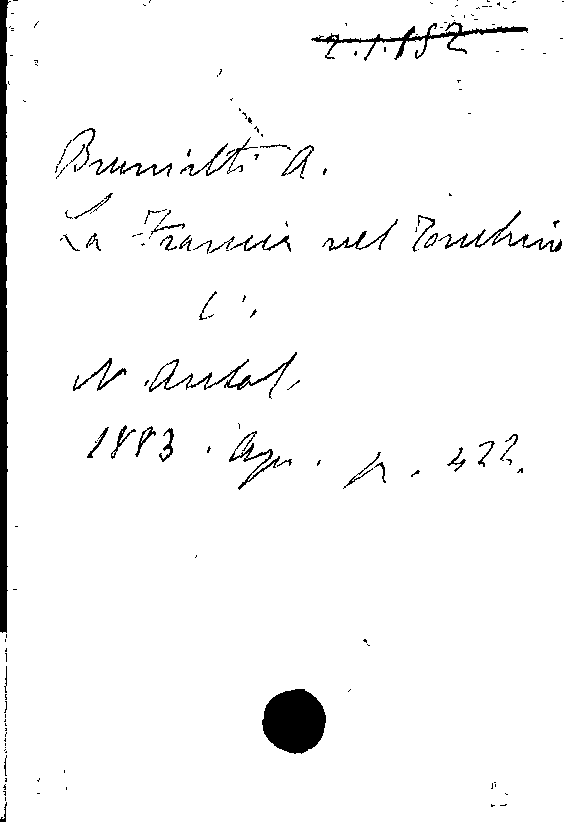 2.1.152
Brunialti A.
La Francia nel Tonchino
N. Antol.
1883. Ago. p. 422.